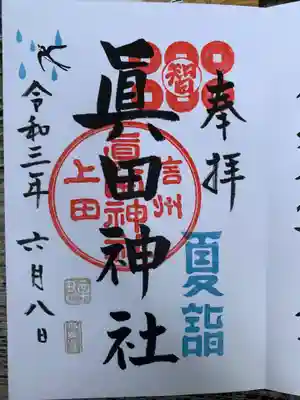 奉拝
智
眞田神社
信州
上田
眞田神社
夏詣
令和三年 六月八日